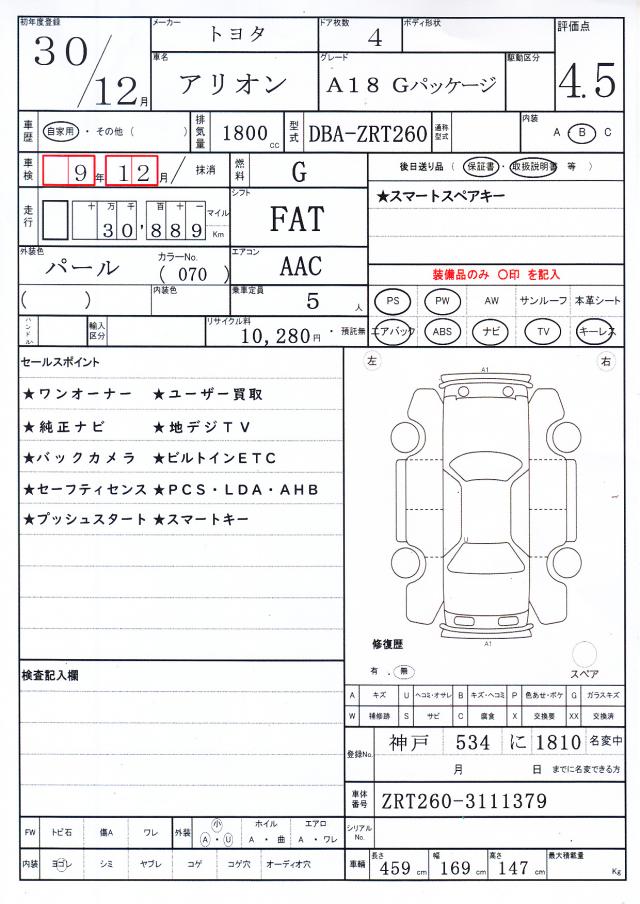 初年度登録 30/12月
メーカー トヨタ
ドア枚数 4
ボディ形状
評価点 4.5
車名 アリオン
グレード A18 Gパッケージ
駆動区分
車歴 自家用 ・ その他 ( )
排気量 1800 cc
型式 DBA-ZRT260
通称型式
内装 A ・ B C
車検 9年 12月 / 抹消
燃料 G
後日送り品 ( 保証書 ・ 取扱説明書 等 )
走行 十万千百十一 30,889 マイル Km
シフト FAT
★スマートスペアキー
外装色 パール
カラーNo. ( 070 )
エアコン AAC
装備品のみ 〇印 を記入
( )
内装色
乗車定員 5 人
PS PW AW サンルーフ 本革シート
ハンドル
輸入区分
リサイクル料 10,280円 ・ 預託無
エアバック ABS ナビ TV キーレス
セールスポイント
★ワンオーナー ★ユーザー買取
★純正ナビ ★地デジTV
★バックカメラ ★ビルトインETC
★セーフティセンス ★PCS・LDA・AHB
★プッシュスタート ★スマートキー
左 右
A1
U
A1
修復歴
有 . 無
スペア
検査記入欄
A キズ U ヘコミ・オサレ B キズ・ヘコミ P 色あせ・ボケ G ガラスキズ
W 補修跡 S サビ C 腐食 X 交換要 XX 交換済
登録No. 神戸 534 に 1810 名変中
月 日 までに名変できる方
車体番号 ZRT260-3111379
シリアルNo.
FW トビ石 傷A ワレ 外装 小 A ・ U ホイル A ・ 曲 エアロ A ・ ワレ
内装 ヨゴレ シミ ヤブレ コゲ コゲ穴 オーディオ穴
車輌 長さ 459 cm 幅 169 cm 高さ 147 cm 最大積載量 Kg